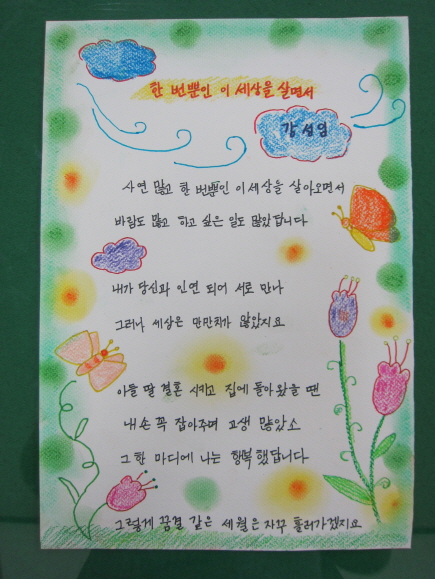 한 번뿐인 이 세상을 살면서
강성임
사연 많고 한 번뿐인 이 세상을 살아오면서
바람도 많고 하고 싶은 일도 많았답니다
내가 당신과 인연 되어 서로 만나
그러나 세상은 만만치가 않았지요
아들 딸 결혼 시키고 집에 돌아 왔을 땐
내 손 꼭 잡아주며 고생 많았소
그 한 마디에 나는 행복 했답니다
그렇게 꿈결 같은 세월은 자꾸 흘러가겠지요